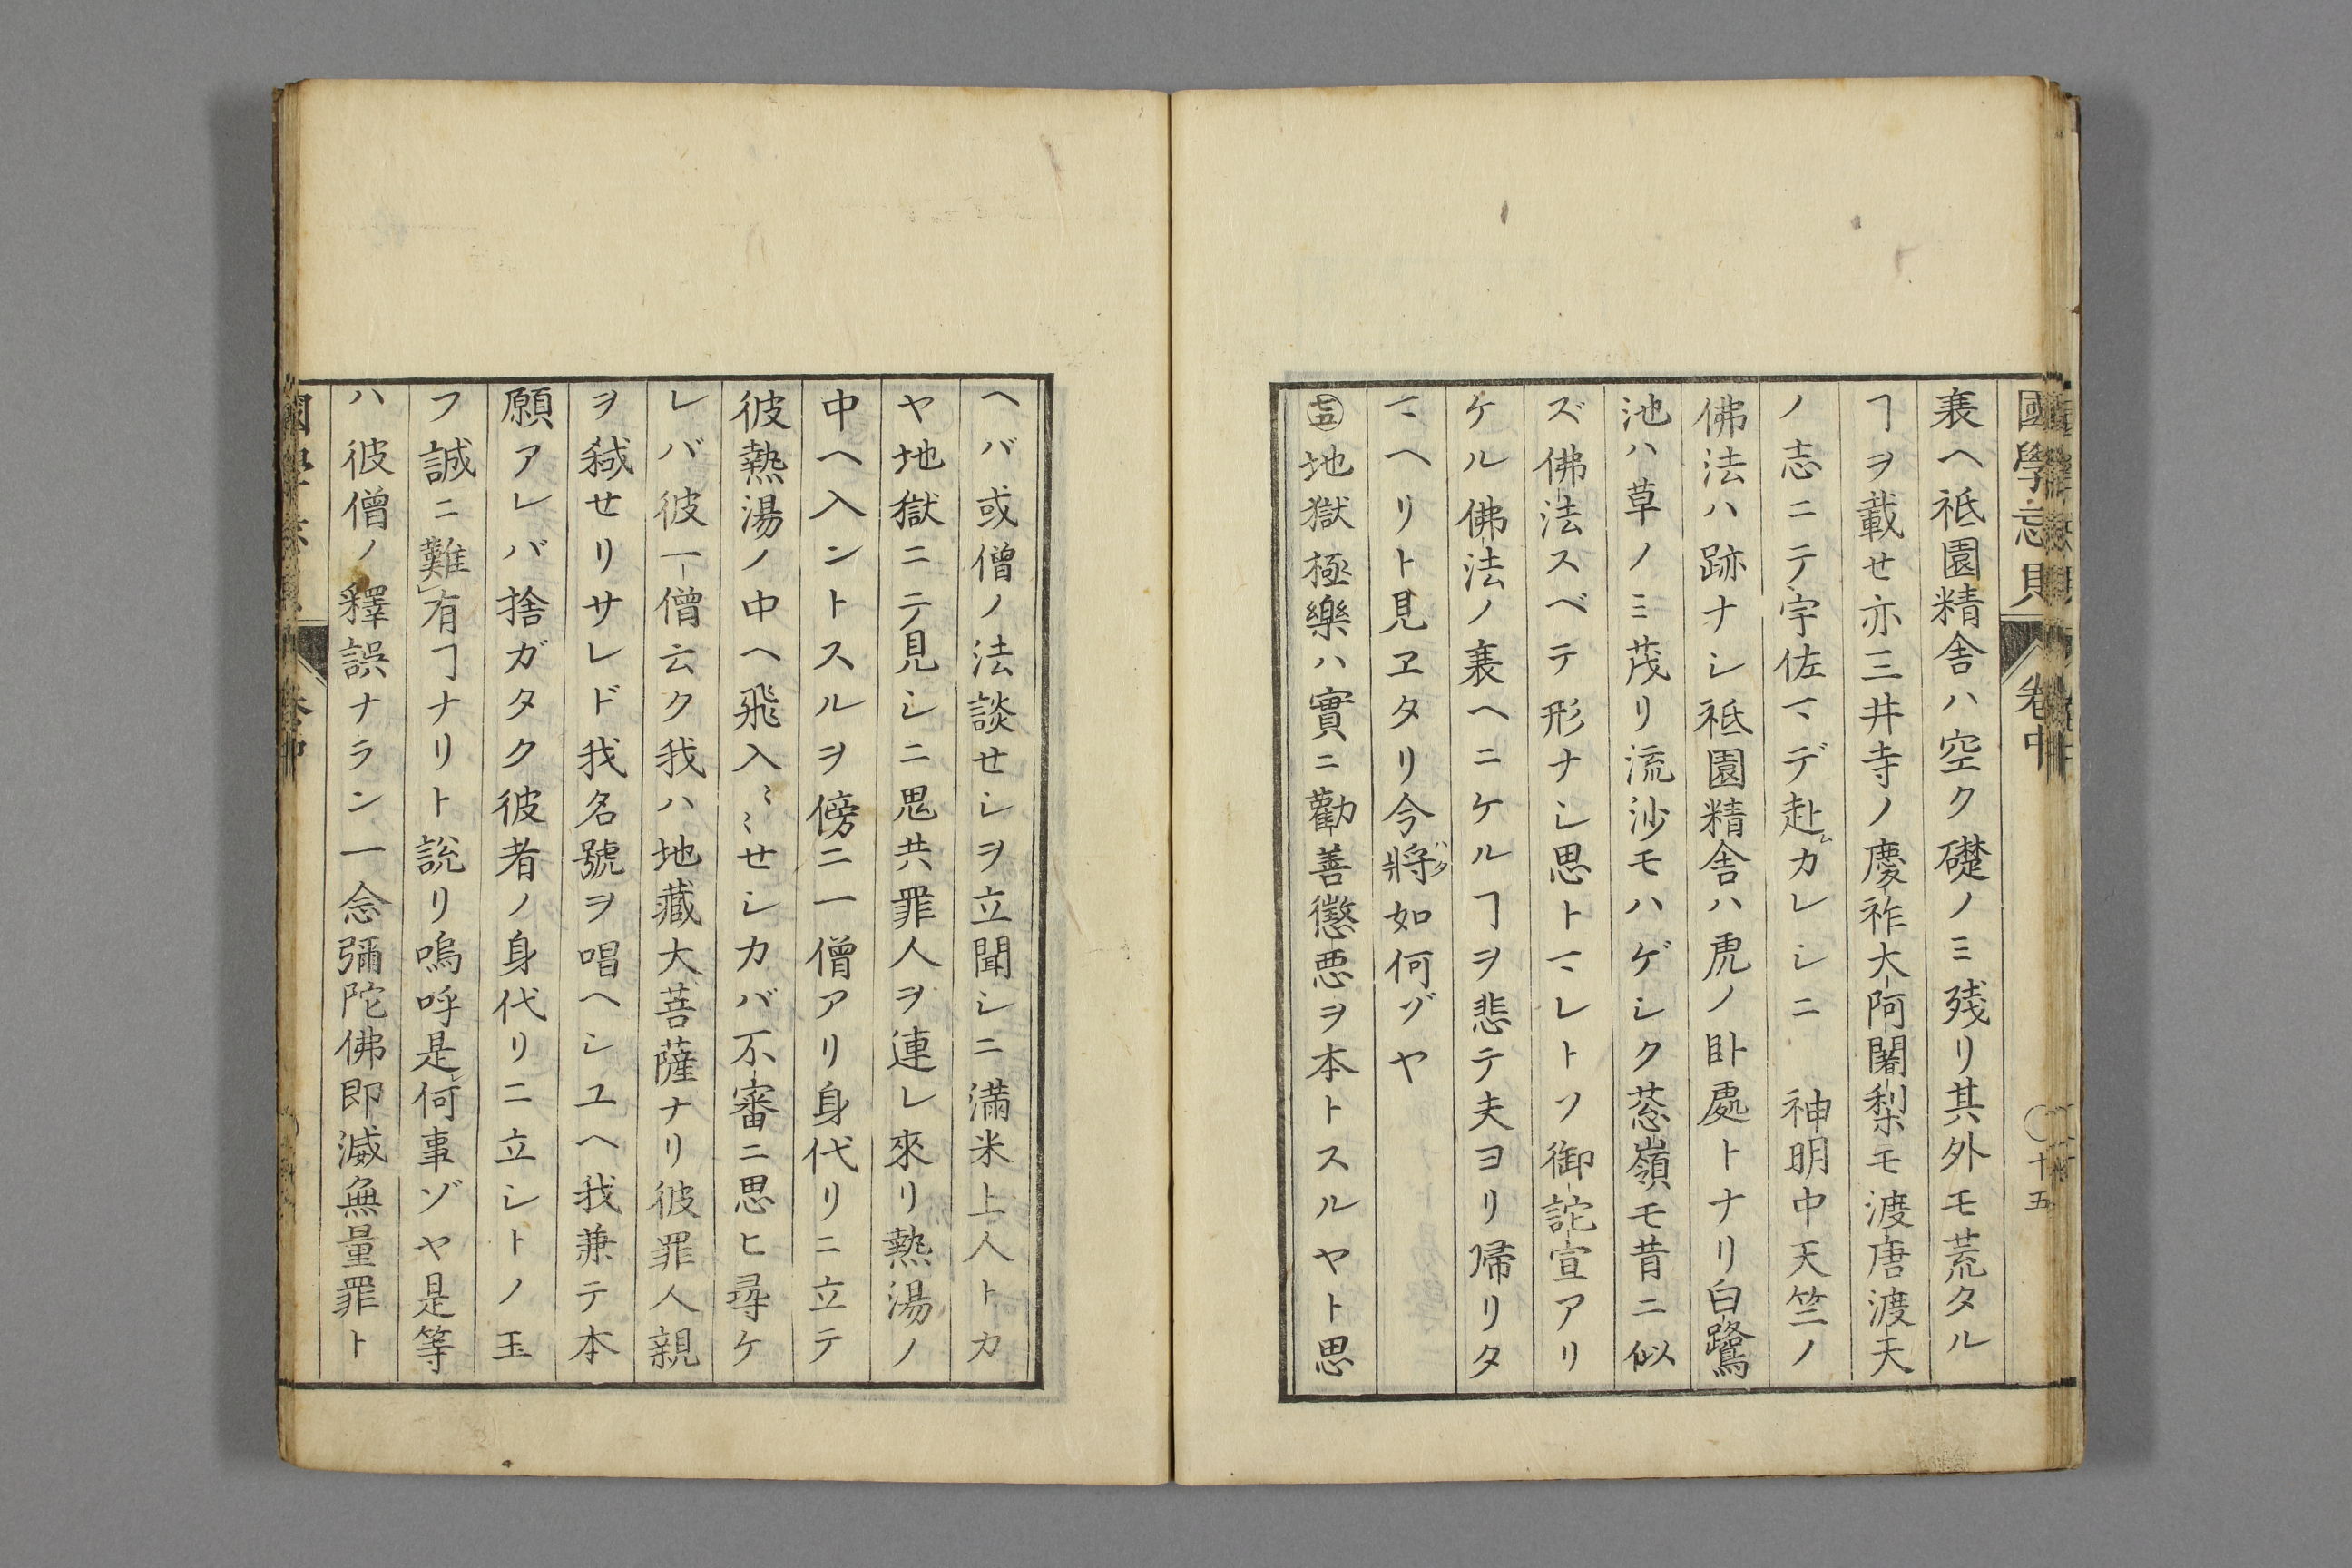 國學忘貝 卷中 十五
衰ヘ祗園精舎ハ空ク礎ノミ残リ其外モ荒タル
ヿヲ載セ亦三井寺ノ慶祚大阿闍梨モ渡唐渡天
ノ志ニテ宇佐マデ赴カレシニ 神明中天竺ノ
佛法ハ跡ナシ祗園精舎ハ虎ノ臥處トナリ白鷺
池ハ草ノミ茂リ流沙モハゲシク葱嶺モ昔ニ似
ズ佛法スベテ形ナシ思トマレトソ御詫宣アリ
ケル佛法ノ衰ヘニケルヿヲ悲テ夫ヨリ帰リタ
マヘリト見ヱタリ今將ハタ如何ゾヤ
㊆五地獄極樂ハ實ニ勸善懲悪ヲ本トスルヤト思
ヘバ或僧ノ法談セシヲ立聞シニ満米上人トカ
ヤ地獄ニテ見シニ鬼共罪人ヲ連レ來リ熱湯ノ
中ヘ入ントスルヲ傍ニ一僧アリ身代リニ立テ
彼熱湯ノ中ヘ飛入〻〻セシカバ不審ニ思ヒ尋ケ
レバ彼一僧云ク我ハ地藏大菩薩ナリ彼罪人親
ヲ弑セリサレド我名號ヲ唱ヘシユヘ我兼テ本
願アレバ捨ガタク彼者ノ身代リニ立シトノ玉
フ誠ニ難有ヿナリト説リ嗚呼是何事ゾヤ是等
ハ彼僧ノ釋誤ナラン一念彌陀佛即滅無量罪ト